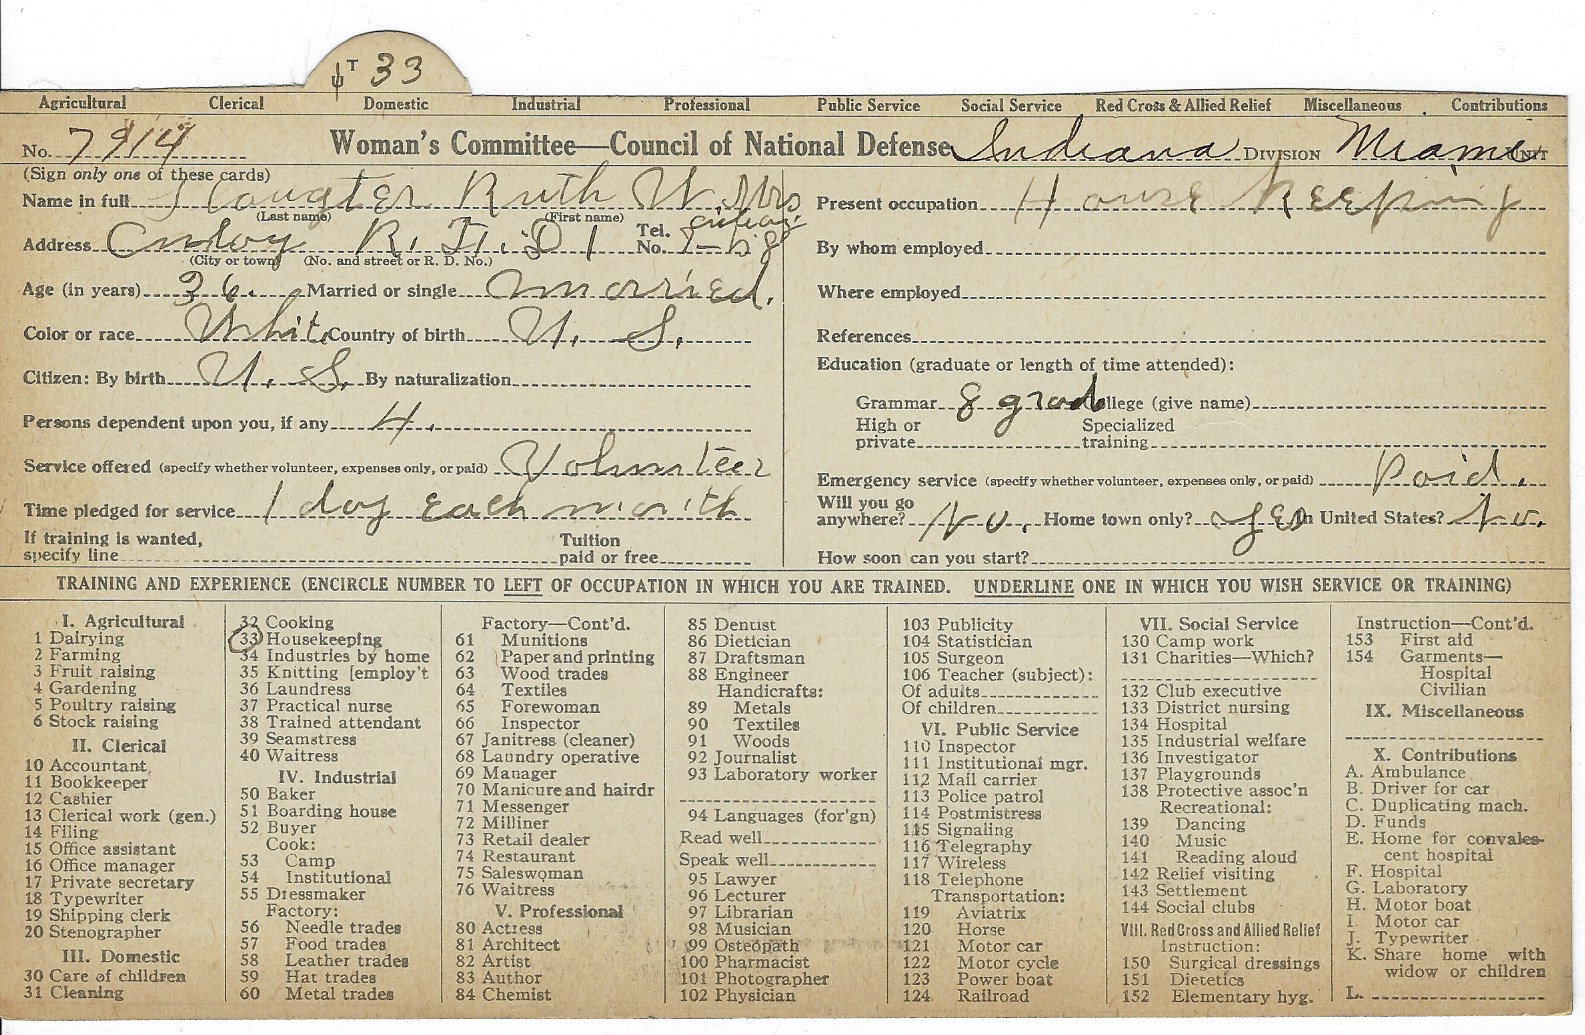 T 33
Agricultural Clerical Domestic Industrial Professional Public Service Social Service Red Cross & Allied Relief Miscellaneous Contributions
No. 7914 Woman's Committee—Council of National Defense Indiana DIVISION Miami UNIT
(Sign only one of these cards)
Name in full Ruth W. Mrs
(Last name) (First name)
Address R. F. D 1 Tel. No.
(City or town) (No. and street or R. D. No.)
Age (in years) 36. Married or single married.
Color or race White Country of birth U. S.
Citizen: By birth U. S. By naturalization
Persons dependent upon you, if any 4.
Service offered (specify whether volunteer, expenses only, or paid) Volunteer
Time pledged for service 1 day each month
If training is wanted, specify line Tuition paid or free
Present occupation House Keeping
By whom employed
Where employed
References
Education (graduate or length of time attended):
Grammar 8 grad College (give name)
High or private Specialized training
Emergency service (specify whether volunteer, expenses only, or paid) Paid.
Will you go anywhere? No. Home town only? Yes In United States? No.
How soon can you start?
TRAINING AND EXPERIENCE (ENCIRCLE NUMBER TO LEFT OF OCCUPATION IN WHICH YOU ARE TRAINED. UNDERLINE ONE IN WHICH YOU WISH SERVICE OR TRAINING)
I. Agricultural
1 Dairying
2 Farming
3 Fruit raising
4 Gardening
5 Poultry raising
6 Stock raising
II. Clerical
10 Accountant
11 Bookkeeper
12 Cashier
13 Clerical work (gen.)
14 Filing
15 Office assistant
16 Office manager
17 Private secretary
18 Typewriter
19 Shipping clerk
20 Stenographer
III. Domestic
30 Care of children
31 Cleaning
32 Cooking
33 Housekeeping
34 Industries by home
35 Knitting [employ't
36 Laundress
37 Practical nurse
38 Trained attendant
39 Seamstress
40 Waitress
IV. Industrial
50 Baker
51 Boarding house
52 Buyer
Cook:
53 Camp
54 Institutional
55 Dressmaker
Factory:
56 Needle trades
57 Food trades
58 Leather trades
59 Hat trades
60 Metal trades
Factory—Cont'd.
61 Munitions
62 Paper and printing
63 Wood trades
64 Textiles
65 Forewoman
66 Inspector
67 Janitress (cleaner)
68 Laundry operative
69 Manager
70 Manicure and hairdr
71 Messenger
72 Milliner
73 Retail dealer
74 Restaurant
75 Saleswoman
76 Waitress
V. Professional
80 Actress
81 Architect
82 Artist
83 Author
84 Chemist
85 Dentist
86 Dietician
87 Draftsman
88 Engineer
Handicrafts:
89 Metals
90 Textiles
91 Woods
92 Journalist
93 Laboratory worker
94 Languages (for'gn)
Read well
Speak well
95 Lawyer
96 Lecturer
97 Librarian
98 Musician
99 Osteopath
100 Pharmacist
101 Photographer
102 Physician
103 Publicity
104 Statistician
105 Surgeon
106 Teacher (subject):
Of adults
Of children
VI. Public Service
110 Inspector
111 Institutional mgr.
112 Mail carrier
113 Police patrol
114 Postmistress
115 Signaling
116 Telegraphy
117 Wireless
118 Telephone
Transportation:
119 Aviatrix
120 Horse
121 Motor car
122 Motor cycle
123 Power boat
124 Railroad
VII. Social Service
130 Camp work
131 Charities—Which?
132 Club executive
133 District nursing
134 Hospital
135 Industrial welfare
136 Investigator
137 Playgrounds
138 Protective assoc'n
Recreational:
139 Dancing
140 Music
141 Reading aloud
142 Relief visiting
143 Settlement
144 Social clubs
VIII. Red Cross and Allied Relief
Instruction:
150 Surgical dressings
151 Dietetics
152 Elementary hyg.
Instruction—Cont'd.
153 First aid
154 Garments—
Hospital
Civilian
IX. Miscellaneous
X. Contributions
A. Ambulance
B. Driver for car
C. Duplicating mach.
D. Funds
E. Home for convales-
cent hospital
F. Hospital
G. Laboratory
H. Motor boat
I Motor car
J. Typewriter
K. Share home with
widow or children
L.